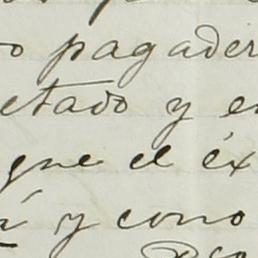 o pagader
etado y en
que el éx
y cono